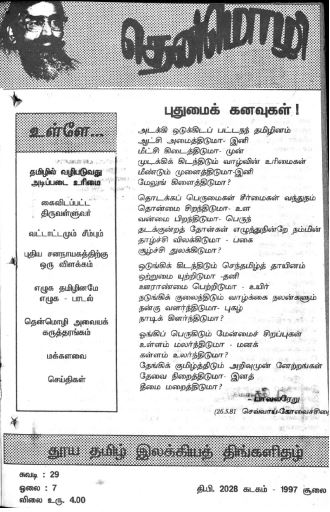 தென்மொழி
புதுமைக் கனவுகள் !
உள்ளே...
தமிழில் வழிபடுவது
அடிப்படை உரிமை
கைவிடப்பட்ட
திருவள்ளுவர்
வட்டாட்டமும் சீம்பும்
புதிய சனநாயகத்திற்கு
ஒரு விளக்கம்
எழுக தமிழினமே
எழுக - பாடல்
தென்மொழி அவையக்
கருத்தரங்கம்
மக்களவை
செய்திகள்
அடக்கி ஒடுக்கிடப் பட்டநந் தமிழினம்
ஆட்சி அமைத்திடுமா- இனி
மீட்சி கிடைத்திடுமா- முன்
முடக்கிக் கிடந்திடும் வாழ்வின் உரிமைகள்
மீண்டும் முளைத்திடுமா-இனி
மேலுங் கிளைத்திடுமா?
தொடக்கப் பெருமைகள் சீர்மைகள் வந்துநம்
தொன்மை சிறந்திடுமா- உள
வன்மை பிறந்திடுமா- பெருந்
தடக்குன்றத் தோள்கள் எழுந்துநின் றே நம்மின்
தாழ்ச்சி விலக்கிடுமா - பகை
சூழ்ச்சி துலக்கிடுமா?
ஒடுங்கிக் கிடந்திடும் செந்தமிழ்த் தாயினம்
ஒற்றுமை யுற்றிடுமா -தனி
ஊராண்மை பெற்றிடுமா - உயிர்
நடுங்கிக் குலைந்திடும் வாழ்க்கை நலன்களும்
நன்கு வளர்ந்திடுமா- புகழ்
நாடிக் கிளர்ந்திடுமா?
ஓங்கிப் பெருகிடும் மேன்மைச் சிறப்புகள்
உள்ளம் மலர்ந்திடுமா - மனக்
கள்ளம் உலர்ந்திடுமா?
தேங்கிக் குமிழ்த்திடும் அறிவுமுன் னேற்றங்கள்
தேவை நிறைத்திடுமா- இனத்
தீமை மறைத்திடுமா?
- பாவலரேறு
(26.5.81 செவ்வாய்-கோவைச்சிறை
தூய தமிழ் இலக்கியத் திங்களிதழ்
சுவடி : 29
ஓலை : 7
விலை உரு. 4.00
தி.பி. 2028 கடகம் - 1997 சூலை